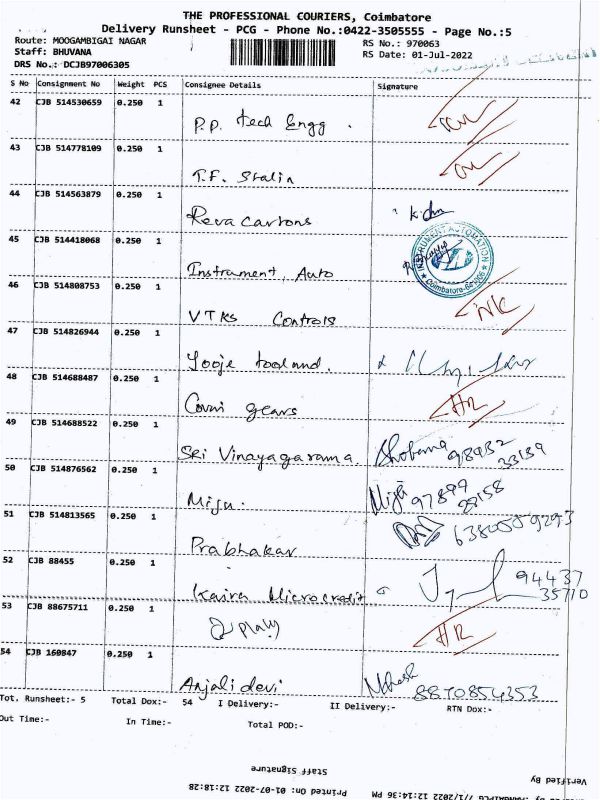 THE PROFESSIONAL COURIERS, Coimbatore
Delivery Runsheet - PCG - Phone No.:0422-3505555 - Page No.:5
Route: MOOGAMBIGAI NAGAR RS No.: 970063
Staff: BHUVANA RS Date: 01-Jul-2022
DRS No.: DCJB97006305
S No Consignment No Weight PCS Consignee Details Signature
42 CJB 514530659 0.250 1
P.P. tech Engg .
43 CJB 514778109 0.250 1
T.F. Stalin
44 CJB 514563879 0.250 1
Reva Cartons
45 CJB 514418068 0.250 1
INSTRUMENT AUTOMATION
Instrument, Auto
Coimbatore
46 CJB 514808753 0.250 1
VTKS Controls NK
47 CJB 514826944 0.250 1
Tooje tooland.
48 CJB 514688487 0.250 1
Covni gears HR
49 CJB 514688522 0.250 1
Sri Vinayagarama Shobana 98432
33189
50 CJB 514876562 0.250 1
Misu. Miji 97899
29158
51 CJB 514813565 0.250 1
Prabhakar 6380509293
52 CJB 88455 0.250 1
Kaira Microcredit 94437
35710
53 CJB 88675711 0.250 1
play HR
54 CJB 160847 0.250 1
Anjali devi Mahesh 8870854353
Tot. Runsheet:- 5 Total Dox:- 54 I Delivery:- II Delivery:- RTN Dox:-
Out Time:- In Time:- Total POD:-
Staff Signature
Verified By
Printed On: 01-07-2022 12:18:28
7/1/2022 12:14:36 PM